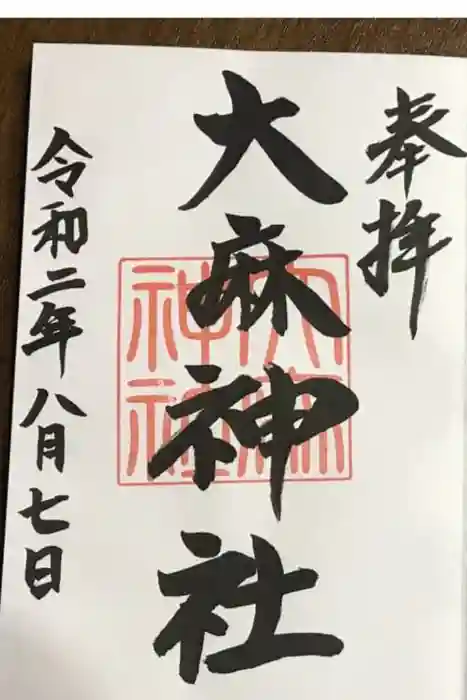 奉拝
大麻神社
大麻神社
令和二年八月七日